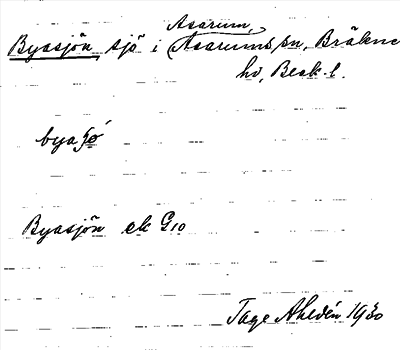 Asarum,
Byasjön, sjö i Asarums sn, Bräkne
hd, Blek. l.
byasjö
Byasjön ek G10
Tage Ahldén 1930